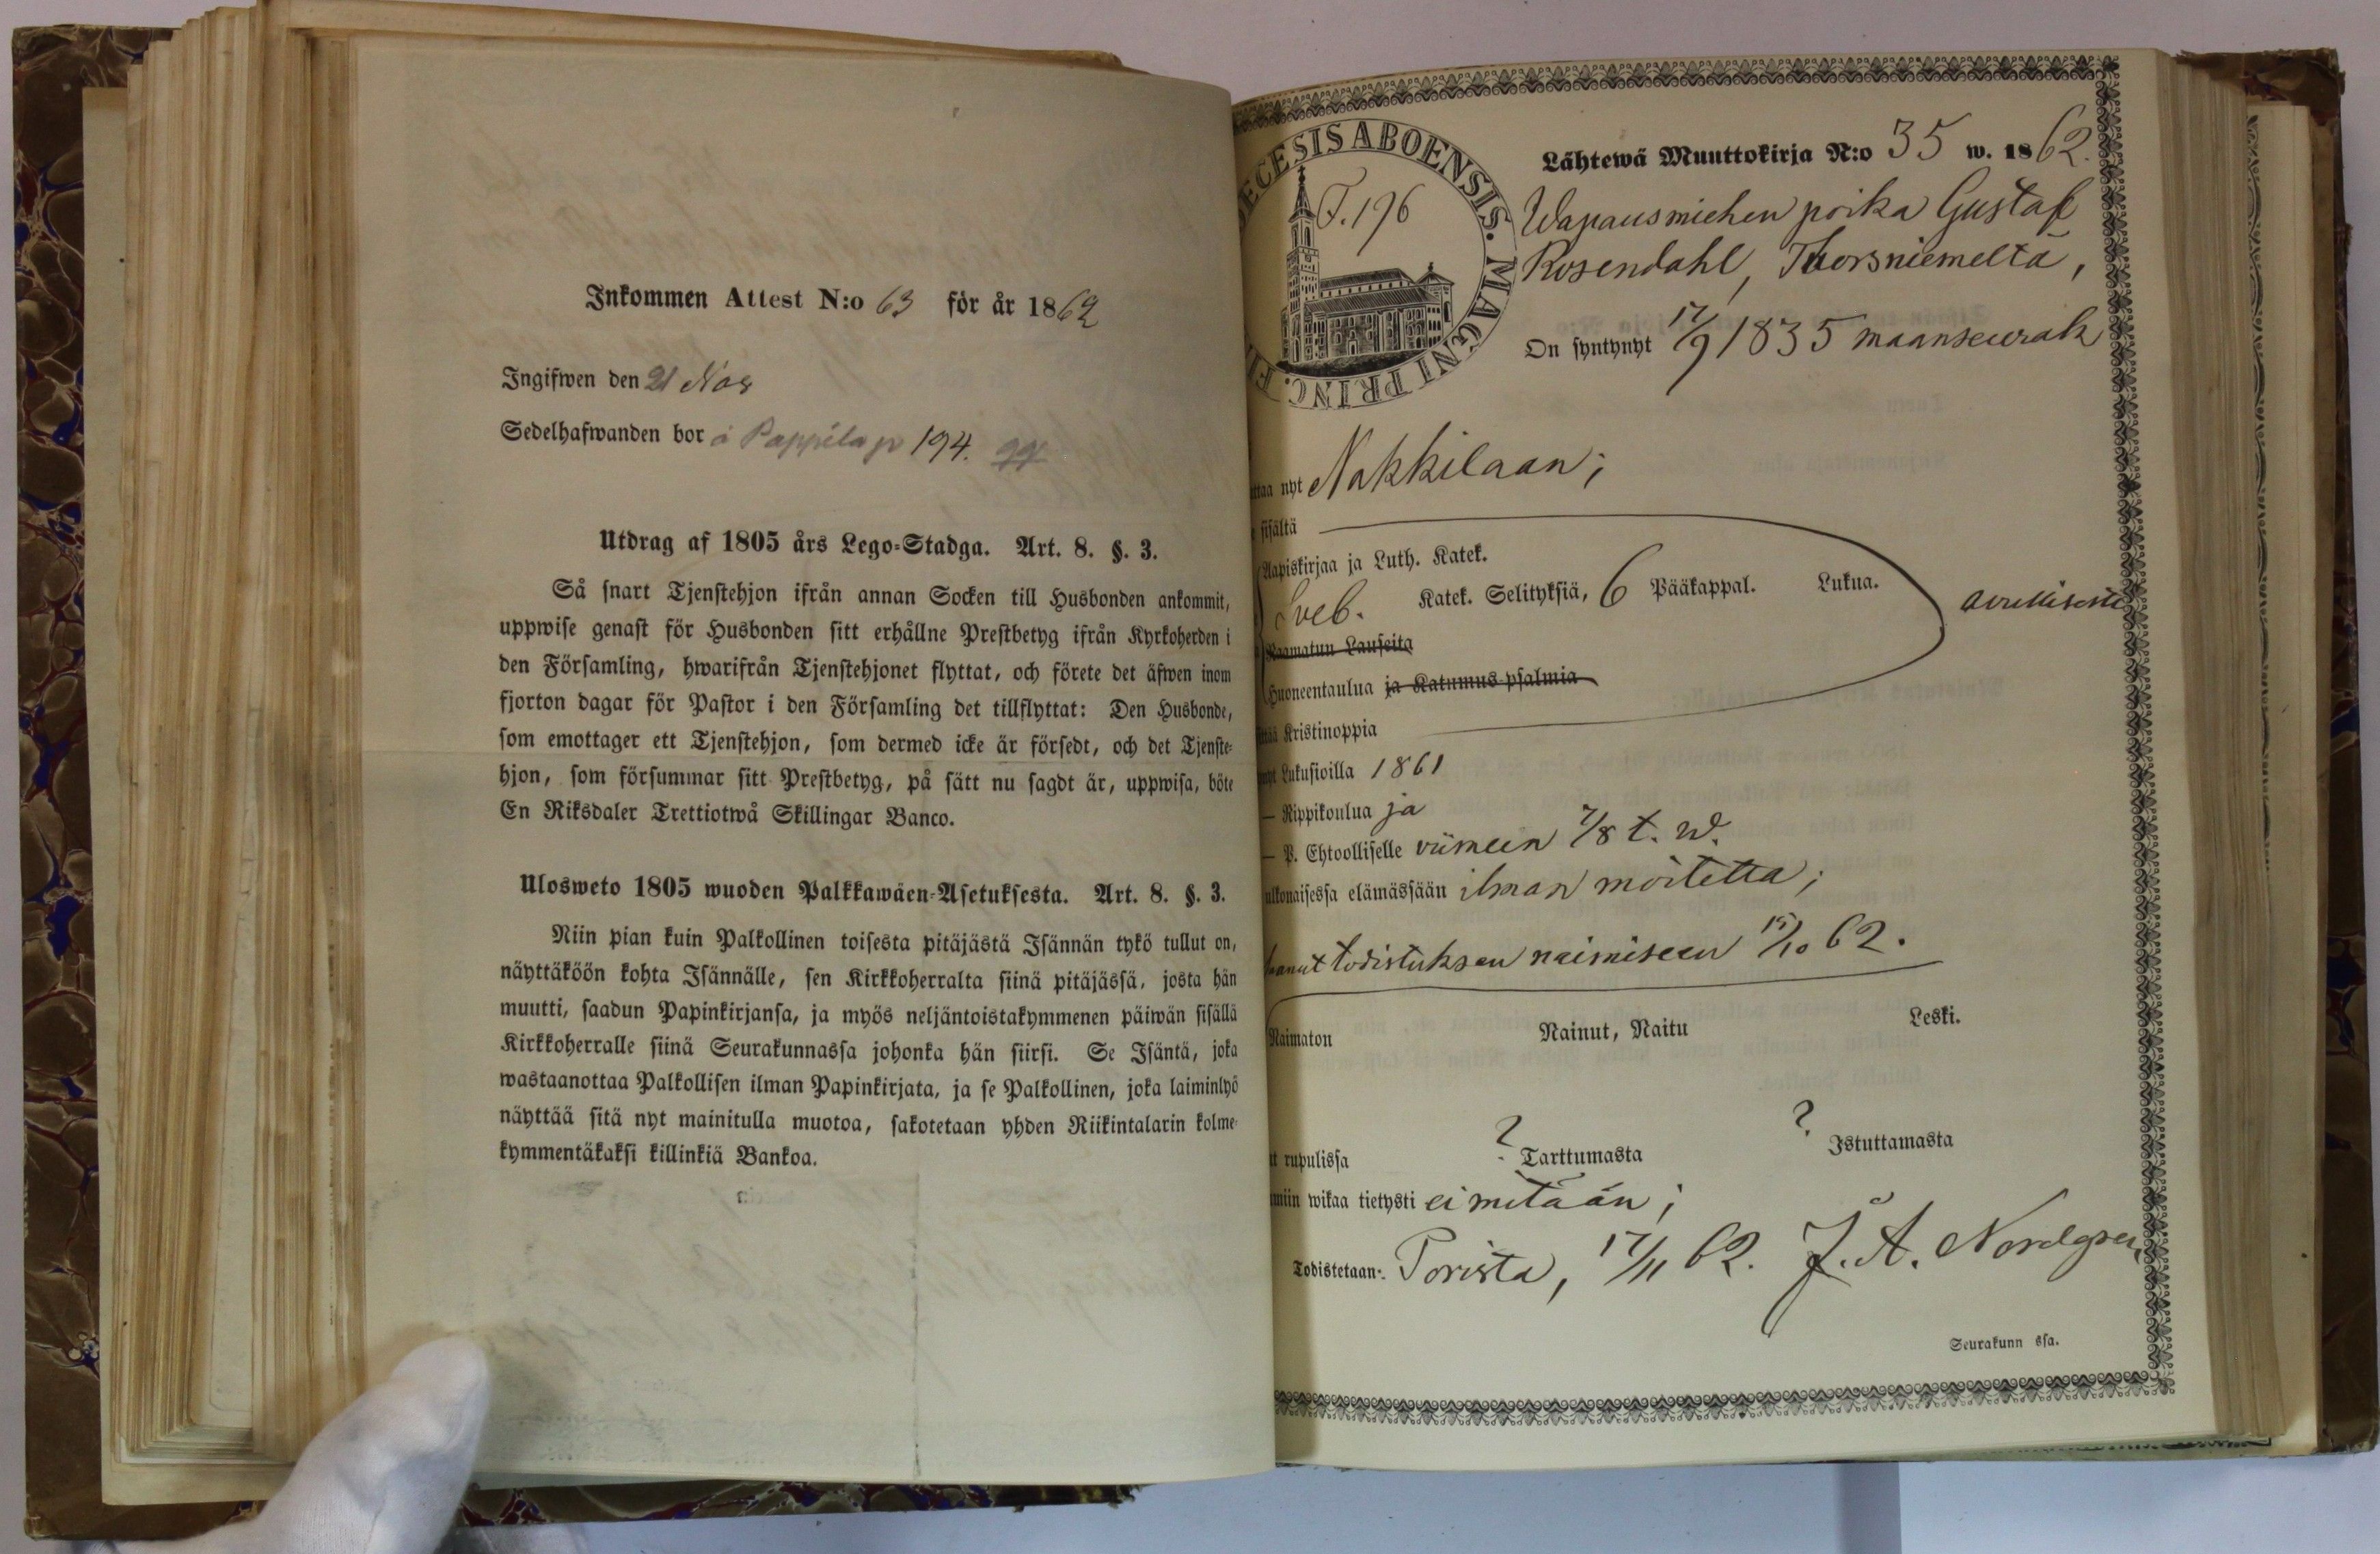 Inkommen Attest N:o 63 för år 1862
Ingifwen den 21 Nov
Sedelhafwanden bor å Pappila p 194.
Utdrag af 1805 års Lego-Stadga. Art. 8. §. 3.
Så snart Tjenstehjon ifrån annan Socken till Husbonden ankommit,
uppwise genast för Husbonden sitt erhållne Prestbetyg ifrån Kyrkoherden i
den Församling, hwarifrån Tjenstehjonet flyttat, och förete det äfwen inom
fjorton dagar för Pastor i den Församling det tillflyttat: Den Husbonde,
som emottager ett Tjenstehjon, som dermed icke är försedt, och det Tjenste-
hjon, som försummar sitt Prestbetyg, på sätt nu sagdt är, uppwisa, böte
En Riksdaler Trettiotwå Skillingar Banco.
Ulosweto 1805 wuoden Palkkawäen-Asetuksesta. Art. 8. §. 3.
Niin pian kuin Palkollinen toisesta pitäjästä Isännän tykö tullut on,
näyttäköön kohta Isännälle, sen Kirkkoherralta siinä pitäjässä, josta hän
muutti, saadun Papinkirjansa, ja myös neljäntoistakymmenen päiwän sisällä
Kirkkoherralle siinä Seurakunnassa johonka hän siirsi. Se Isäntä, joka
wastaanottaa Palkollisen ilman Papinkirjata, ja se Palkollinen, joka laiminlyö
näyttää sitä nyt mainitulla muotoa, sakotetaan yhden Riikintalarin kolme-
kymmentäkaksi killinkiä Bankoa.
ECESIS ABOENSIS. MAGNI PRINC. FI
F. 196
Lähtewä Muuttokirja N:o 35 w. 1862.
Wapausmiehen poika Gustaf
Rosendahl, Thorsniemeltä,
On syntynyt 17/9 1835 maanseurak
ttaa nyt Nakkilaan;
sisältä
Aapiskirjaa ja Luth. Katek.
Sveb. Katek. Selityksiä, 6 Pääkappal. Lukua. avullisesti
Raamatun Lauseita
Huoneentaulua ja Katumus-psalmia
ttää Kristinoppia
Lukusioilla 1861
— Rippikoulua ja
— P. Ehtoolliselle viimeen 7/8 t. w.
ulkonaisessa elämässään ilman moitetta;
saanut todistuksen naimiseen 15/10 62.
Naimaton Nainut, Naitu Leski.
t rupulissa ? Tarttumasta ? Istuttamasta
miin wikaa tietysti ei mitään;
Todistetaan: Porista, 17/11 62. J. A. Nordgren,
Seurakunn ssa.